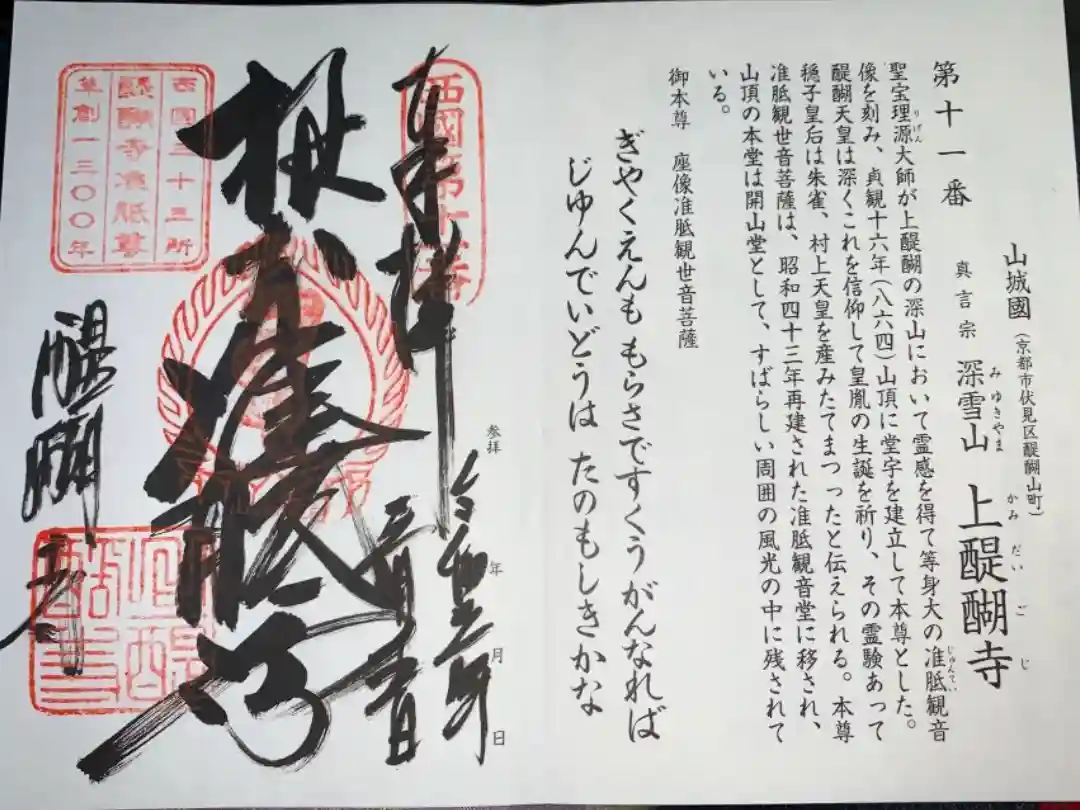 第十一番
山城國(京都市伏見区醍醐山町)
真言宗 深雪山 上醍醐寺
みゆきやま かみだいごじ
聖宝理源大師が上醍醐の深山において霊感を得て等身大の准胝観音
りげん じゅんてい
像を刻み、貞観十六年(八六四)山頂に堂宇を建立して本尊とした。
醍醐天皇は深くこれを信仰して皇胤の生誕を祈り、その霊験あって
穏子皇后は朱雀、村上天皇を産みたてまつったと伝えられる。本尊
准胝観世音菩薩は、昭和四十三年再建された准胝観音堂に移され、
山頂の本堂は開山堂として、すばらしい周囲の風光の中に残されて
いる。
御本尊 座像准胝観世音菩薩
ぎやくえんも もらさですくうがんなれば
じゆんでいどうは たのもしきかな
奉拝
西國第十一番
参拝 年 月 日
西国三十三所
醍醐寺准胝尊
草創一三〇〇年
醍醐寺